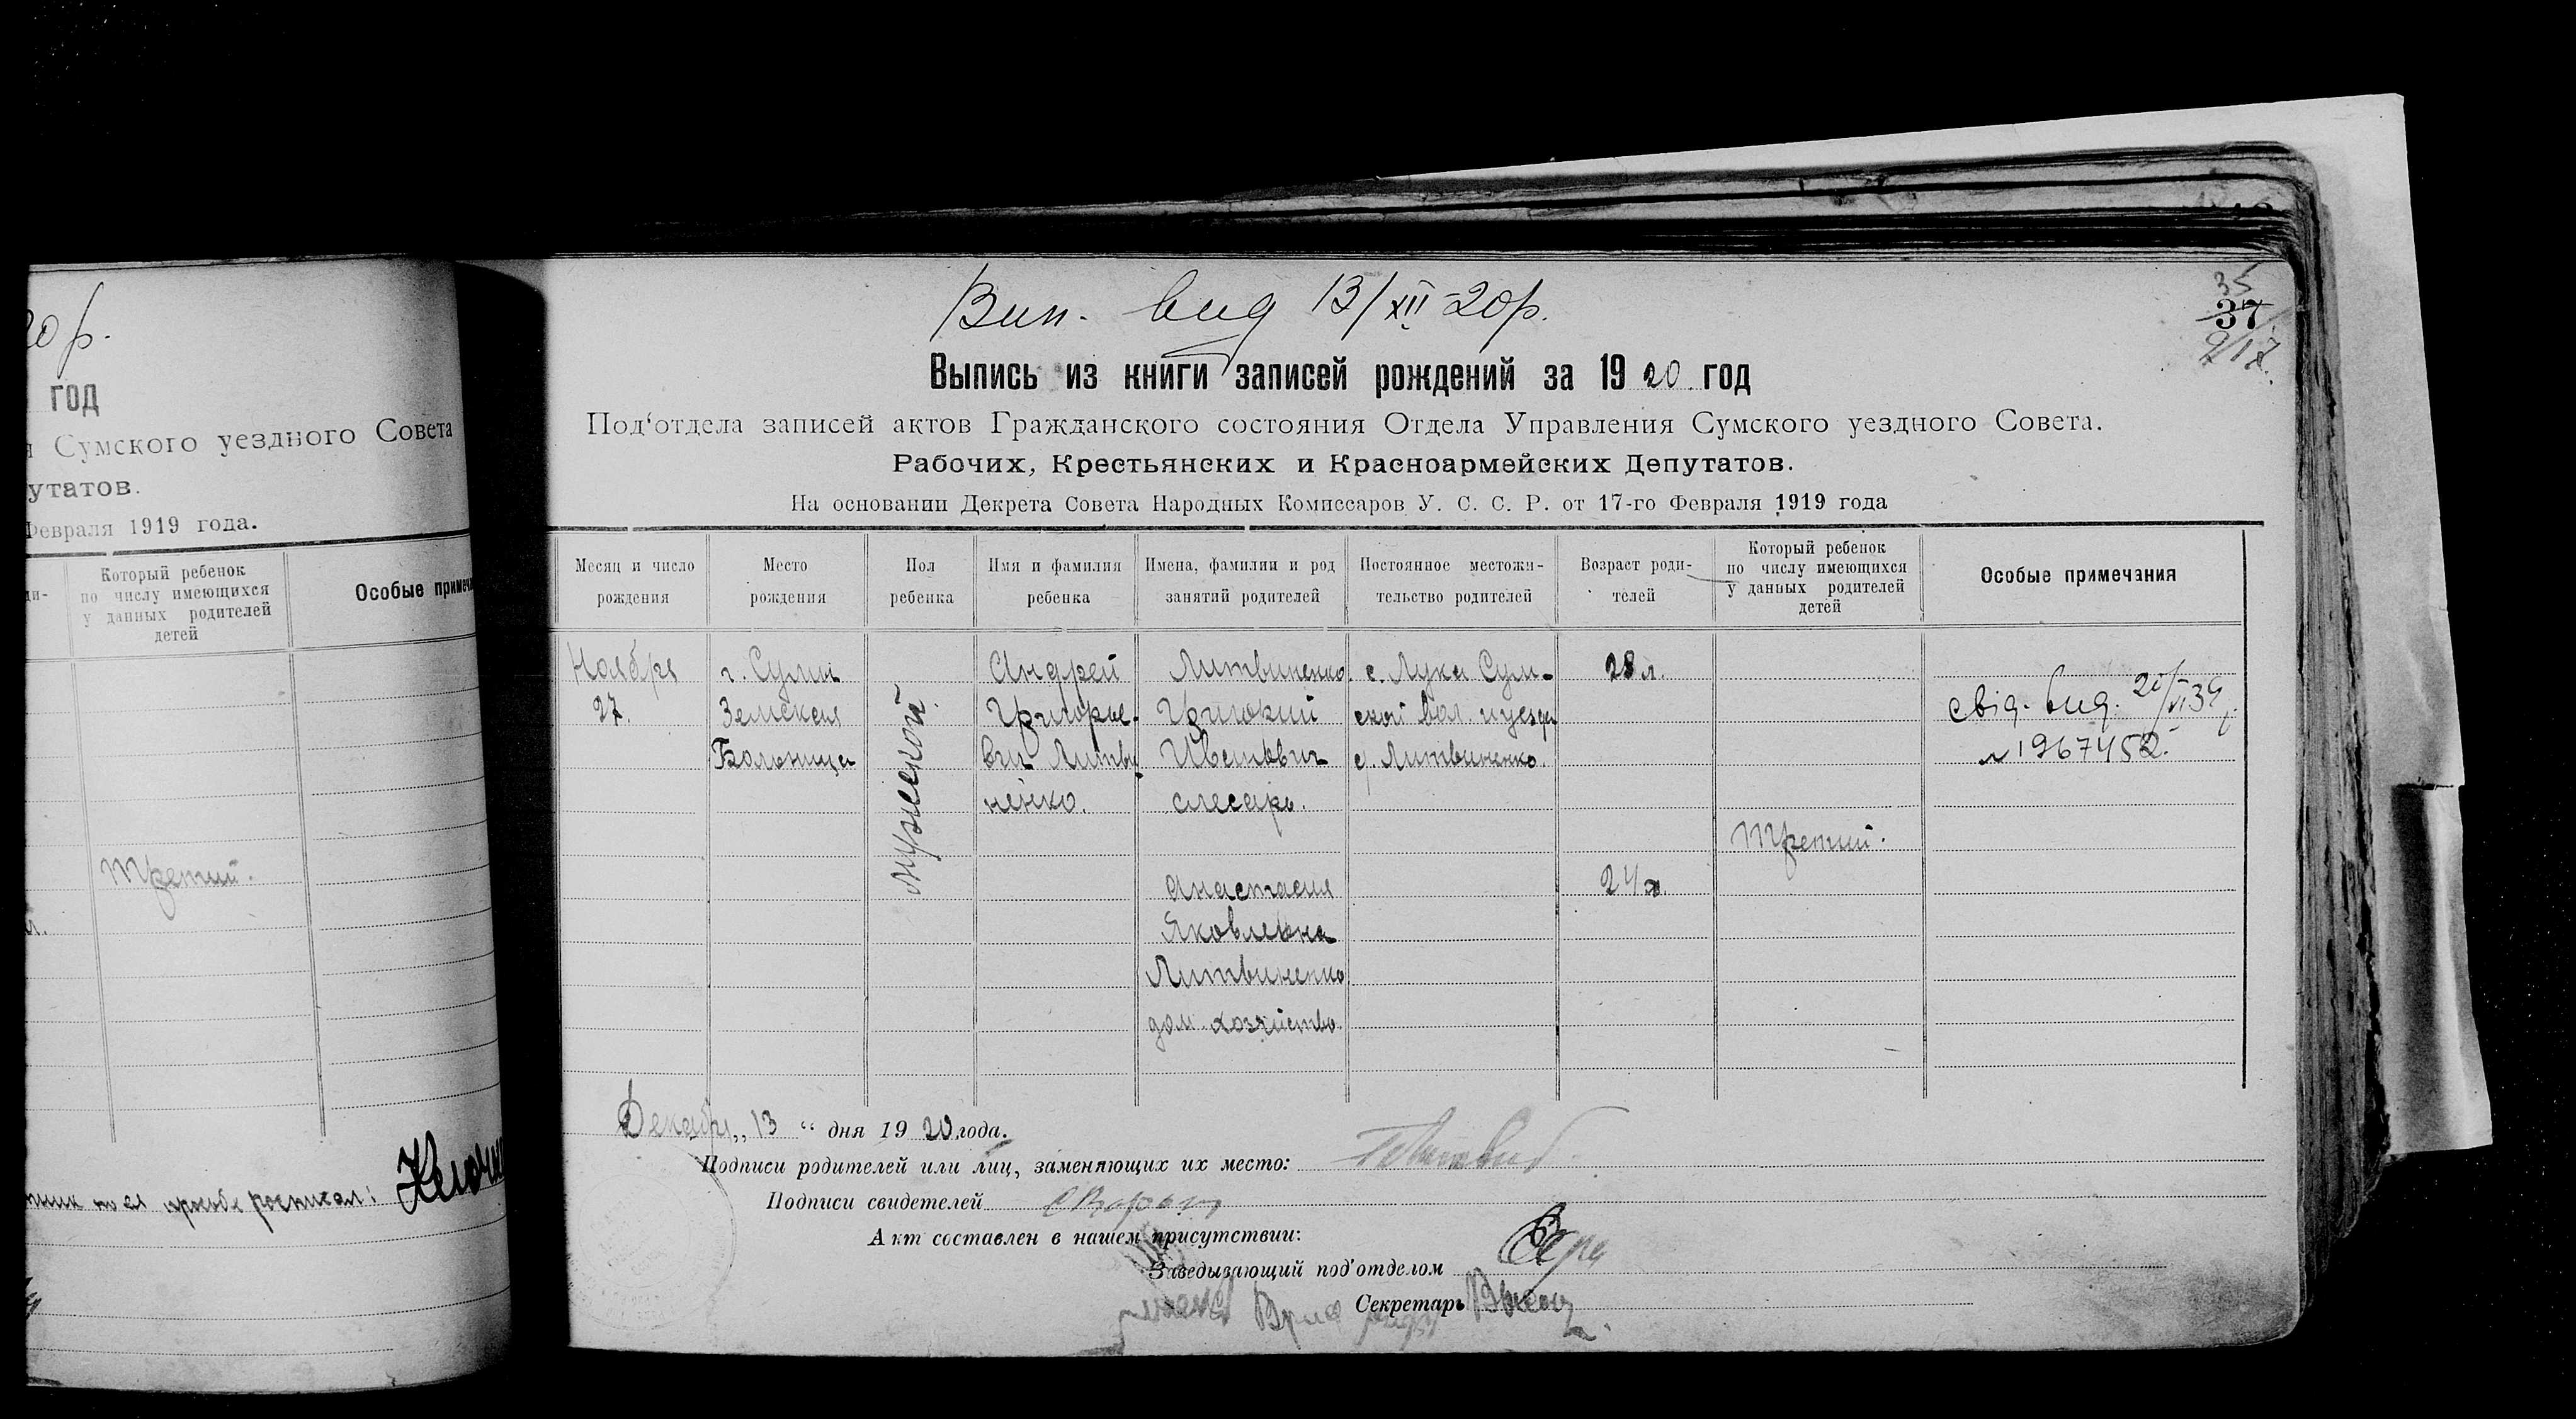 20 р.
год
я Сумского уездного Совета
утатов.
Февраля 1919 года.
Который ребенок
по числу имеющихся
у данных родителей
детей
Особые примеча
третий.
Вип. вид 13/XII 20 р.
35
37
Выпись из книги записей рождений за 1920 год
Под'отдела записей актов Гражданского состояния Отдела Управления Сумского уездного Совета.
Рабочих, Крестьянских и Красноармейских Депутатов.
На основании Декрета Совета Народных Комиссаров У. С. С. Р. от 17-го Февраля 1919 года
Месяц и число рождения
Место рождения
Пол ребенка
Имя и фамилия ребенка
Имена, фамилии и род занятий родителей
Постоянное местожи-тельство родителей
Возраст роди-телей
Который ребенок по числу имеющихся у данных родителей детей
Особые примечания
Ноября
27.
г. Сумы
Земская
Больница
мужской
Андрей
Григорье-
вич Литви
ненко.
Литвиненко
Григорий
Иванович
слесарь.
Анастасия
Яковлевна
Литвиненко
дом. хозяйство.
с. Лука Сум-
ской вол. и уезда
с. Литвиненко.
28 л.
24 л.
третий.
свід. вид.
№ 1967452.
Декабря „ 13 “ дня 1920 года.
Подписи родителей или лиц, заменяющих их место:
Подписи свидетелей
Акт составлен в нашем присутствии:
Заведывающий под'отделом
Секретарь